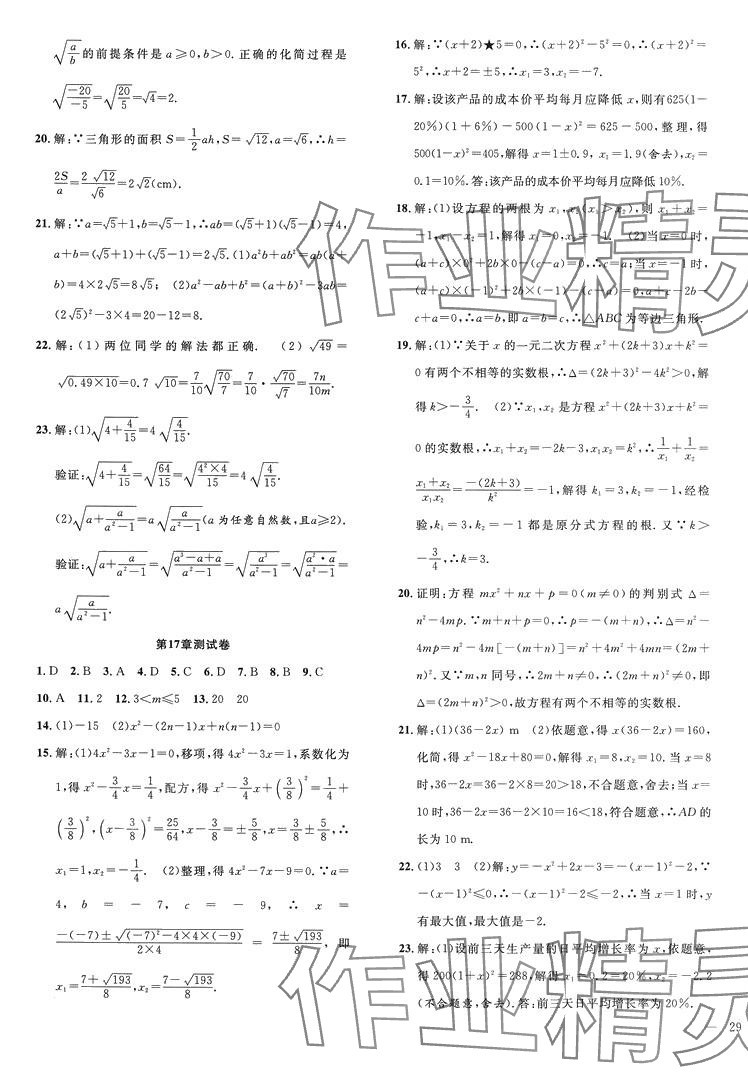 √(a/b)的前提条件是a≥0,b>0.正确的化简过程是
√(-20/-5)=√(20/5)=√4=2.
20.解:∵三角形的面积S=1/2ah,S=√12,a=√6,∴h=
2S/a=2√12/√6=2√2(cm).
21.解:∵a=√5+1,b=√5-1,∴ab=(√5+1)(√5-1)=4,
a+b=(√5+1)+(√5-1)=2√5.(1)a²b+ab²=ab(a+
b)=4×2√5=8√5; (2)a²-ab+b²=(a+b)²-3ab=
(2√5)²-3×4=20-12=8.
22.解:(1)两位同学的解法都正确. (2)√49=
√(0.49×10)=0.7√10=7/10√(70/7)=7/10·√70/√7=7n/10m.
23.解:(1)√(4+4/15)=4√(4/15).
验证:√(4+4/15)=√(64/15)=√(4²×4/15)=4√(4/15).
(2)√(a+a/(a²-1))=a√(a/(a²-1))(a为任意自然数,且a≥2).
验证:√(a+a/(a²-1))=√((a³-a+a)/(a²-1))=√(a³/(a²-1))=√(a²·a/(a²-1))=
a√(a/(a²-1)).
第17章测试卷
1.D 2.B 3.A 4.D 5.C 6.D 7.B 8.B 9.C
10.A 11.2 12.3<m≤5 13.20 20
14.(1)-15 (2)x²-(2n-1)x+n(n-1)=0
15.解:(1)4x²-3x-1=0,移项,得4x²-3x=1,系数化为
1,得x²-3/4x=1/4,配方,得x²-3/4x+(3/8)²=1/4+
(3/8)²,(x-3/8)²=25/64,x-3/8=±5/8,x=3/8±5/8,∴
x₁=1,x₂=-1/4. (2)整理,得4x²-7x-9=0.∵a=
4, b = -7, c = -9, ∴ x =
(-(-7)±√((-7)²-4×4×(-9)))/(2×4) = (7±√193)/8, 即
x₁=(7+√193)/8,x₂=(7-√193)/8.
16.解:∵(x+2)★5=0,∴(x+2)²-5²=0,∴(x+2)²=
5²,∴x+2=±5,∴x₁=3,x₂=-7.
17.解:设该产品的成本价平均每月应降低x,则有625(1-
20%)(1+6%)-500(1-x)²=625-500,整理,得
500(1-x)²=405,解得x=1±0.9, x₁=1.9(舍去),x₂=
0.1=10%.答:该产品的成本价平均每月应降低10%.
18.解:(1)设方程的两根为x₁,x₂(x₁>x₂),则x₁+x₂=
-1,x₁-x₂=1,解得x₁=0,x₂=-1. (2)当x=0时,
(a+c)×0²+2b×0-(c-a)=0,∴c=a;当x=-1时,
(a+c)×(-1)²+2b×(-1)-(c-a)=0,a+c-2b-
c+a=0,∴a=b,即a=b=c,∴△ABC为等边三角形.
19.解:(1)∵关于x的一元二次方程x²+(2k+3)x+k²=
0有两个不相等的实数根,∴Δ=(2k+3)²-4k²>0,解
得k>-3/4. (2)∵x₁,x₂是方程x²+(2k+3)x+k²=
0的实数根,∴x₁+x₂=-2k-3,x₁x₂=k²,∴1/x₁+1/x₂=
(x₁+x₂)/(x₁x₂)=-(2k+3)/k²=-1,解得k₁=3,k₂=-1,经检
验,k₁=3,k₂=-1都是原分式方程的根.又∵k>
-3/4,∴k=3.
20.证明:方程mx²+nx+p=0(m≠0)的判别式Δ=
n²-4mp.∵m+n+p=0,∴p=-(m+n),∴Δ=n²-
4mp=n²-4m[-(m+n)]=n²+4m²+4mn=(2m+
n)².又∵m,n同号,∴2m+n≠0,∴(2m+n)²≠0,即
Δ=(2m+n)²>0,故方程有两个不相等的实数根.
21.解:(1)(36-2x) m (2)依题意,得x(36-2x)=160,
化简,得x²-18x+80=0,解得x₁=8,x₂=10.当x=8
时,36-2x=36-2×8=20>18,不合题意,舍去;当x=
10时,36-2x=36-2×10=16<18,符合题意,∴AD的
长为10 m.
22.(1)3 3 (2)解:y=-x²+2x-3=-(x-1)²-2,∵
-(x-1)²≤0,∴-(x-1)²-2≤-2,∴当x=1时,y
有最大值,最大值是-2.
23.解:(1)设前三天生产量的日平均增长率为x,依题意,
得200(1+x)²=288,解得x₁=0.2=20%,x₂=-2.2
(不合题意,舍去).答:前三天日平均增长率为20%.
— 29
作业精灵
作业精灵